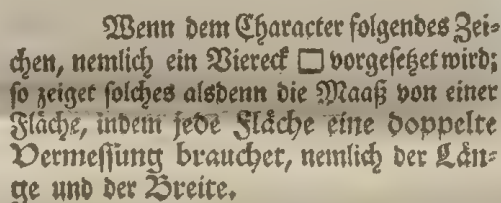 Wenn dem Character folgendes Zei-
chen, nemlich ein Viereck □ vorgesetzet wird;
so zeiget solches alsdenn die Maaß von einer
Fläche, indem jede Fläche eine doppelte
Vermessung brauchet, nemlich der Län-
ge und der Breite.